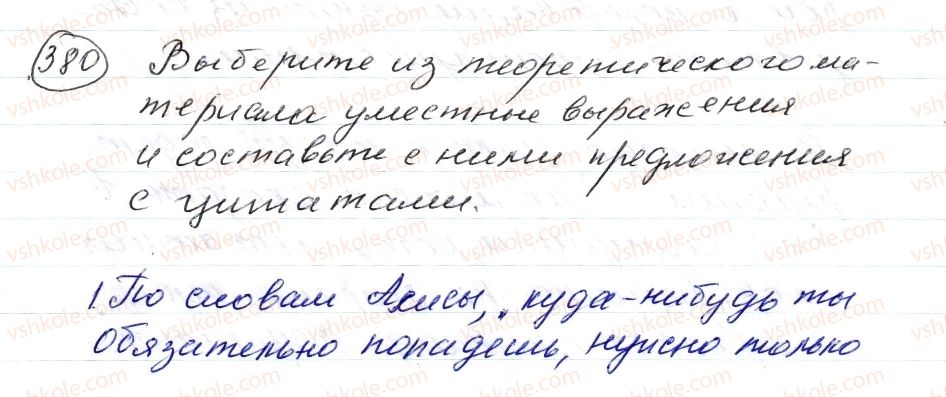 380 Выберите из теоретического ма-
териала уместные выражения
и составьте с ними предложения
с цитатами.
1. По словам Алисы, „куда-нибудь ты
обязательно попадешь, нужно только